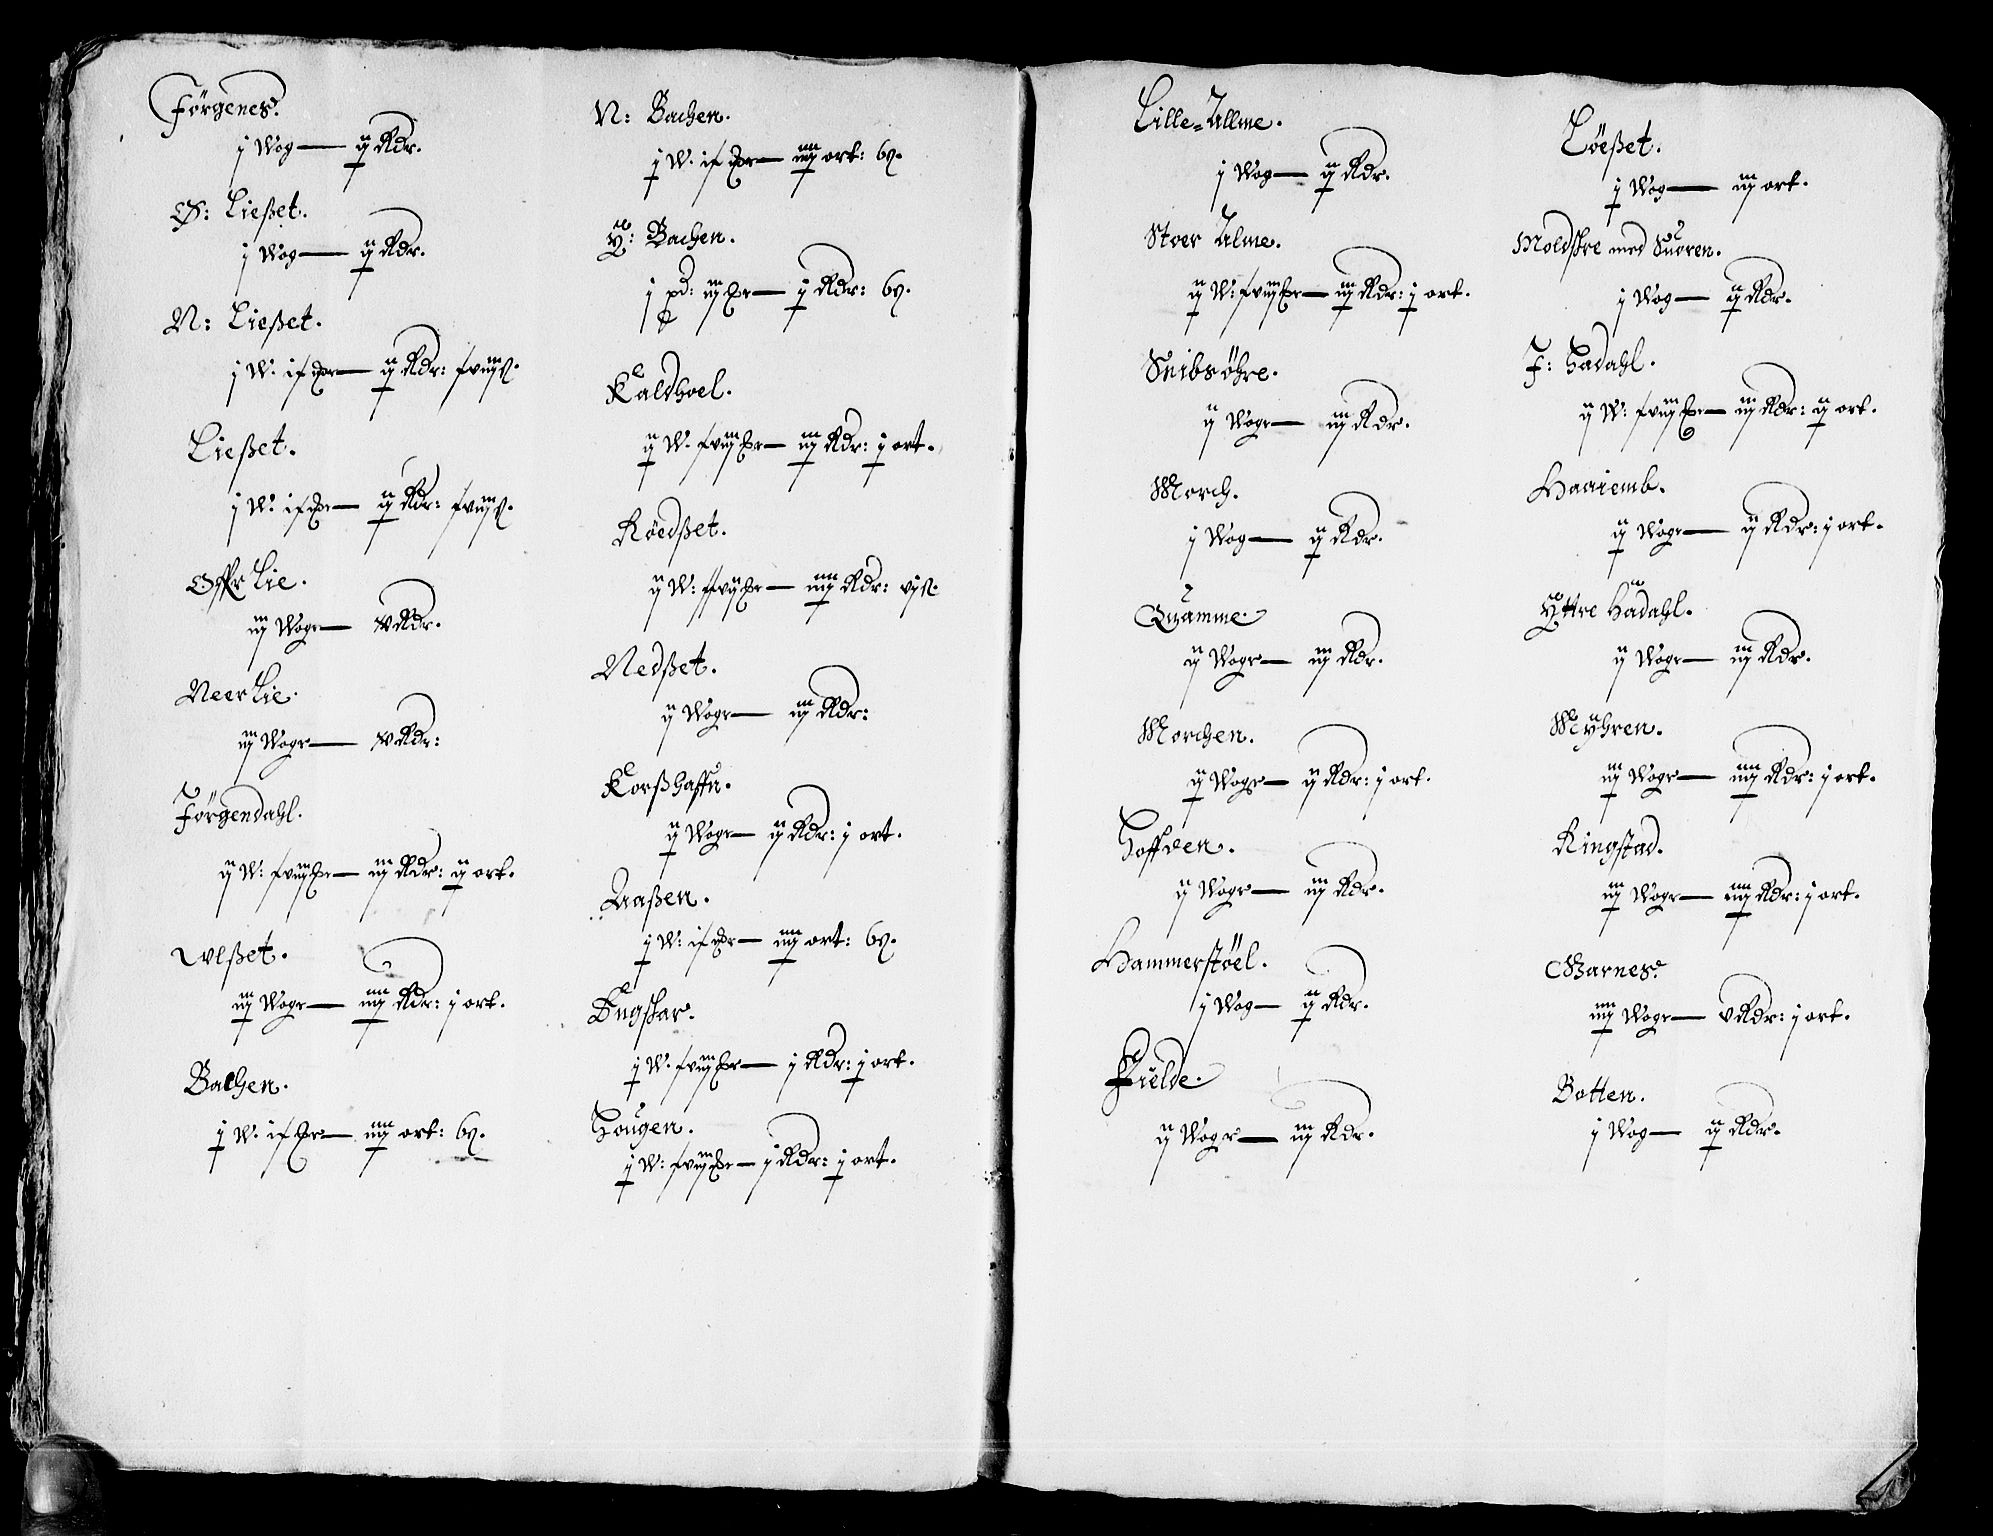 Jørgenes.
j Wog — ij Rdr.
Ø: Ließet.
j Wog — ij Rdr.
N: Ließet.
j W. if pr — ij Rdr: fviij ß.
Ließet.
j W. if pr — ij Rdr: fviij ß.
Offr Lie.
iij Wogr — v Rdr.
Neer Lie.
iij Wogr — v Rdr:
Jørgendahl.
ij W. fviij pr — iij Rdr: ij ort.
Wlßet.
iij Wogr — iiij Rdr: j ort.
Bachen.
j W. if pr — iiij ort: 6 ß.
N: Bachen.
j W. if pr — iiij ort: 6 ß.
Y: Bachen.
j pd: iij pr — j Rdr: 6 ß.
Kaldhoel.
ij W. fviij pr — iij Rdr: j ort.
Røedßet.
ij W: ffvij pr — iiij Rdr: vj ß.
Nedßet.
ij Wogr — iij Rdr:
Korßhaffn.
ij Wogr — ij Rdr: j ort.
Aaßen.
j W: if pr — iiij ort: 6 ß.
Engskar.
j W. fviij pr — j Rdr: j ort.
Hougen.
j W: fviij pr — j Rdr: j ort.
Lille-Allme.
j Wog — ij Rdr.
Stoer Alme.
ij W: fviij pr — iij Rdr: j ort.
Snibsøhre.
ij Wogr — iij Rdr.
Morch.
j Wog — ij Rdr.
Quamme.
ij Wogr — iij Rdr.
Morchen.
ij Wogr — ij Rdr: j ort.
Hoffden.
ij Wogr — iij Rdr.
Hammerstøel.
j Wog — ij Rdr.
Fielde.
ij Wogr — iij Rdr.
Løeßet.
j Wog — iij ort.
Moldskre med Suoren.
j Wog — ij Rdr.
J: Hadahl.
ij W: fviij pr — iij Rdr: ij ort.
Haaiemb.
ij Wogr — ij Rdr: j ort.
Yttre Hadahl.
ij Wogr — iij Rdr.
Myhren.
iij Wogr — iiij Rdr: j ort.
Ringstad.
iij Wogr — iiij Rdr: j ort.
Warnes.
iiij Wogr — v Rdr: j ort.
Botten.
j Wog — ij Rdr.